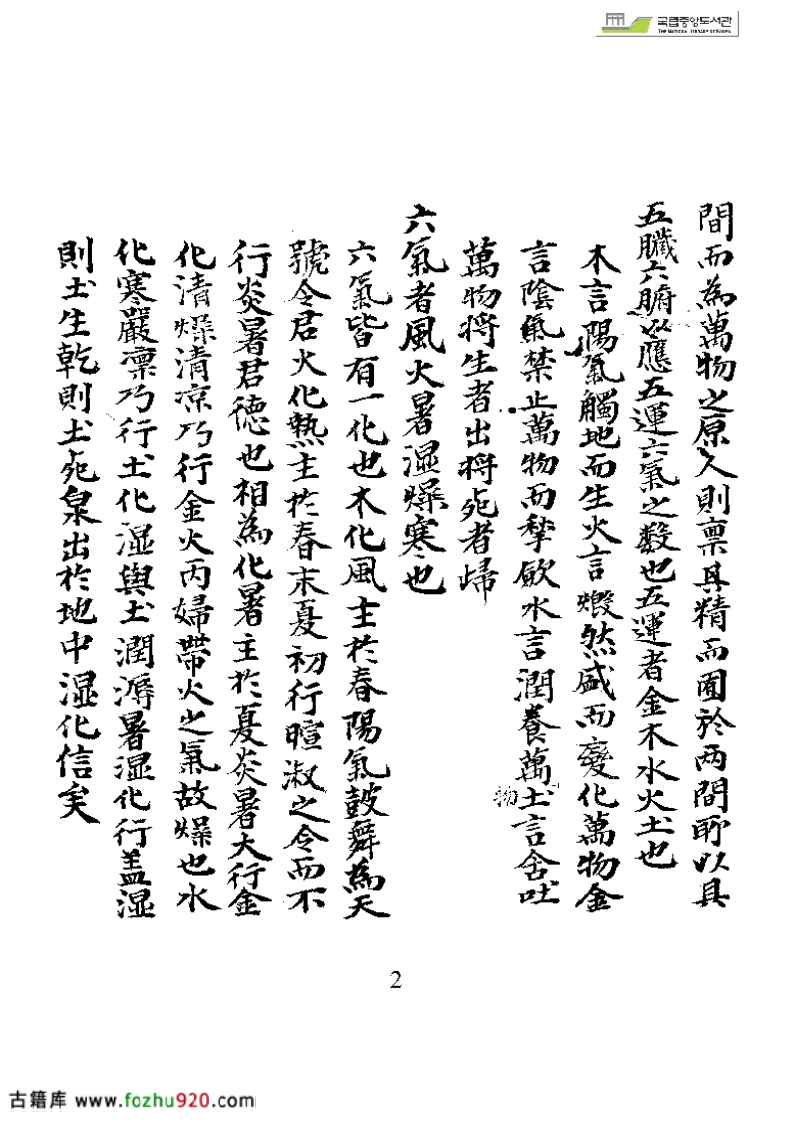 국립중앙도서관
THE NATIONAL LIBRARY OF KOREA
間而為萬物之原人則禀其精而囿於两間所以具
五臟六腑以應五運六氣之数也五運者金木水火土也
木言陽氣觸地而生火言燬然盛而變化萬物金
言陰氣禁止萬物而揫歛水言潤養萬物土言含吐
萬物将生者出将死者歸
六氣者風火暑湿燥寒也
六氣皆有一化也木化風主於春陽氣鼓舞為天
號令君火化熱主於春末夏初行暄淑之令而不
行炎暑君德也相為化暑主於夏炎暑大行金
化清燥清凉乃行金火丙婦帶火之氣故燥也水
化寒嚴凛乃行土化湿與土潤溽暑湿化行盖湿
則土生乾則土死泉出於地中湿化信矣
2
古籍库 www.fozhu920.com